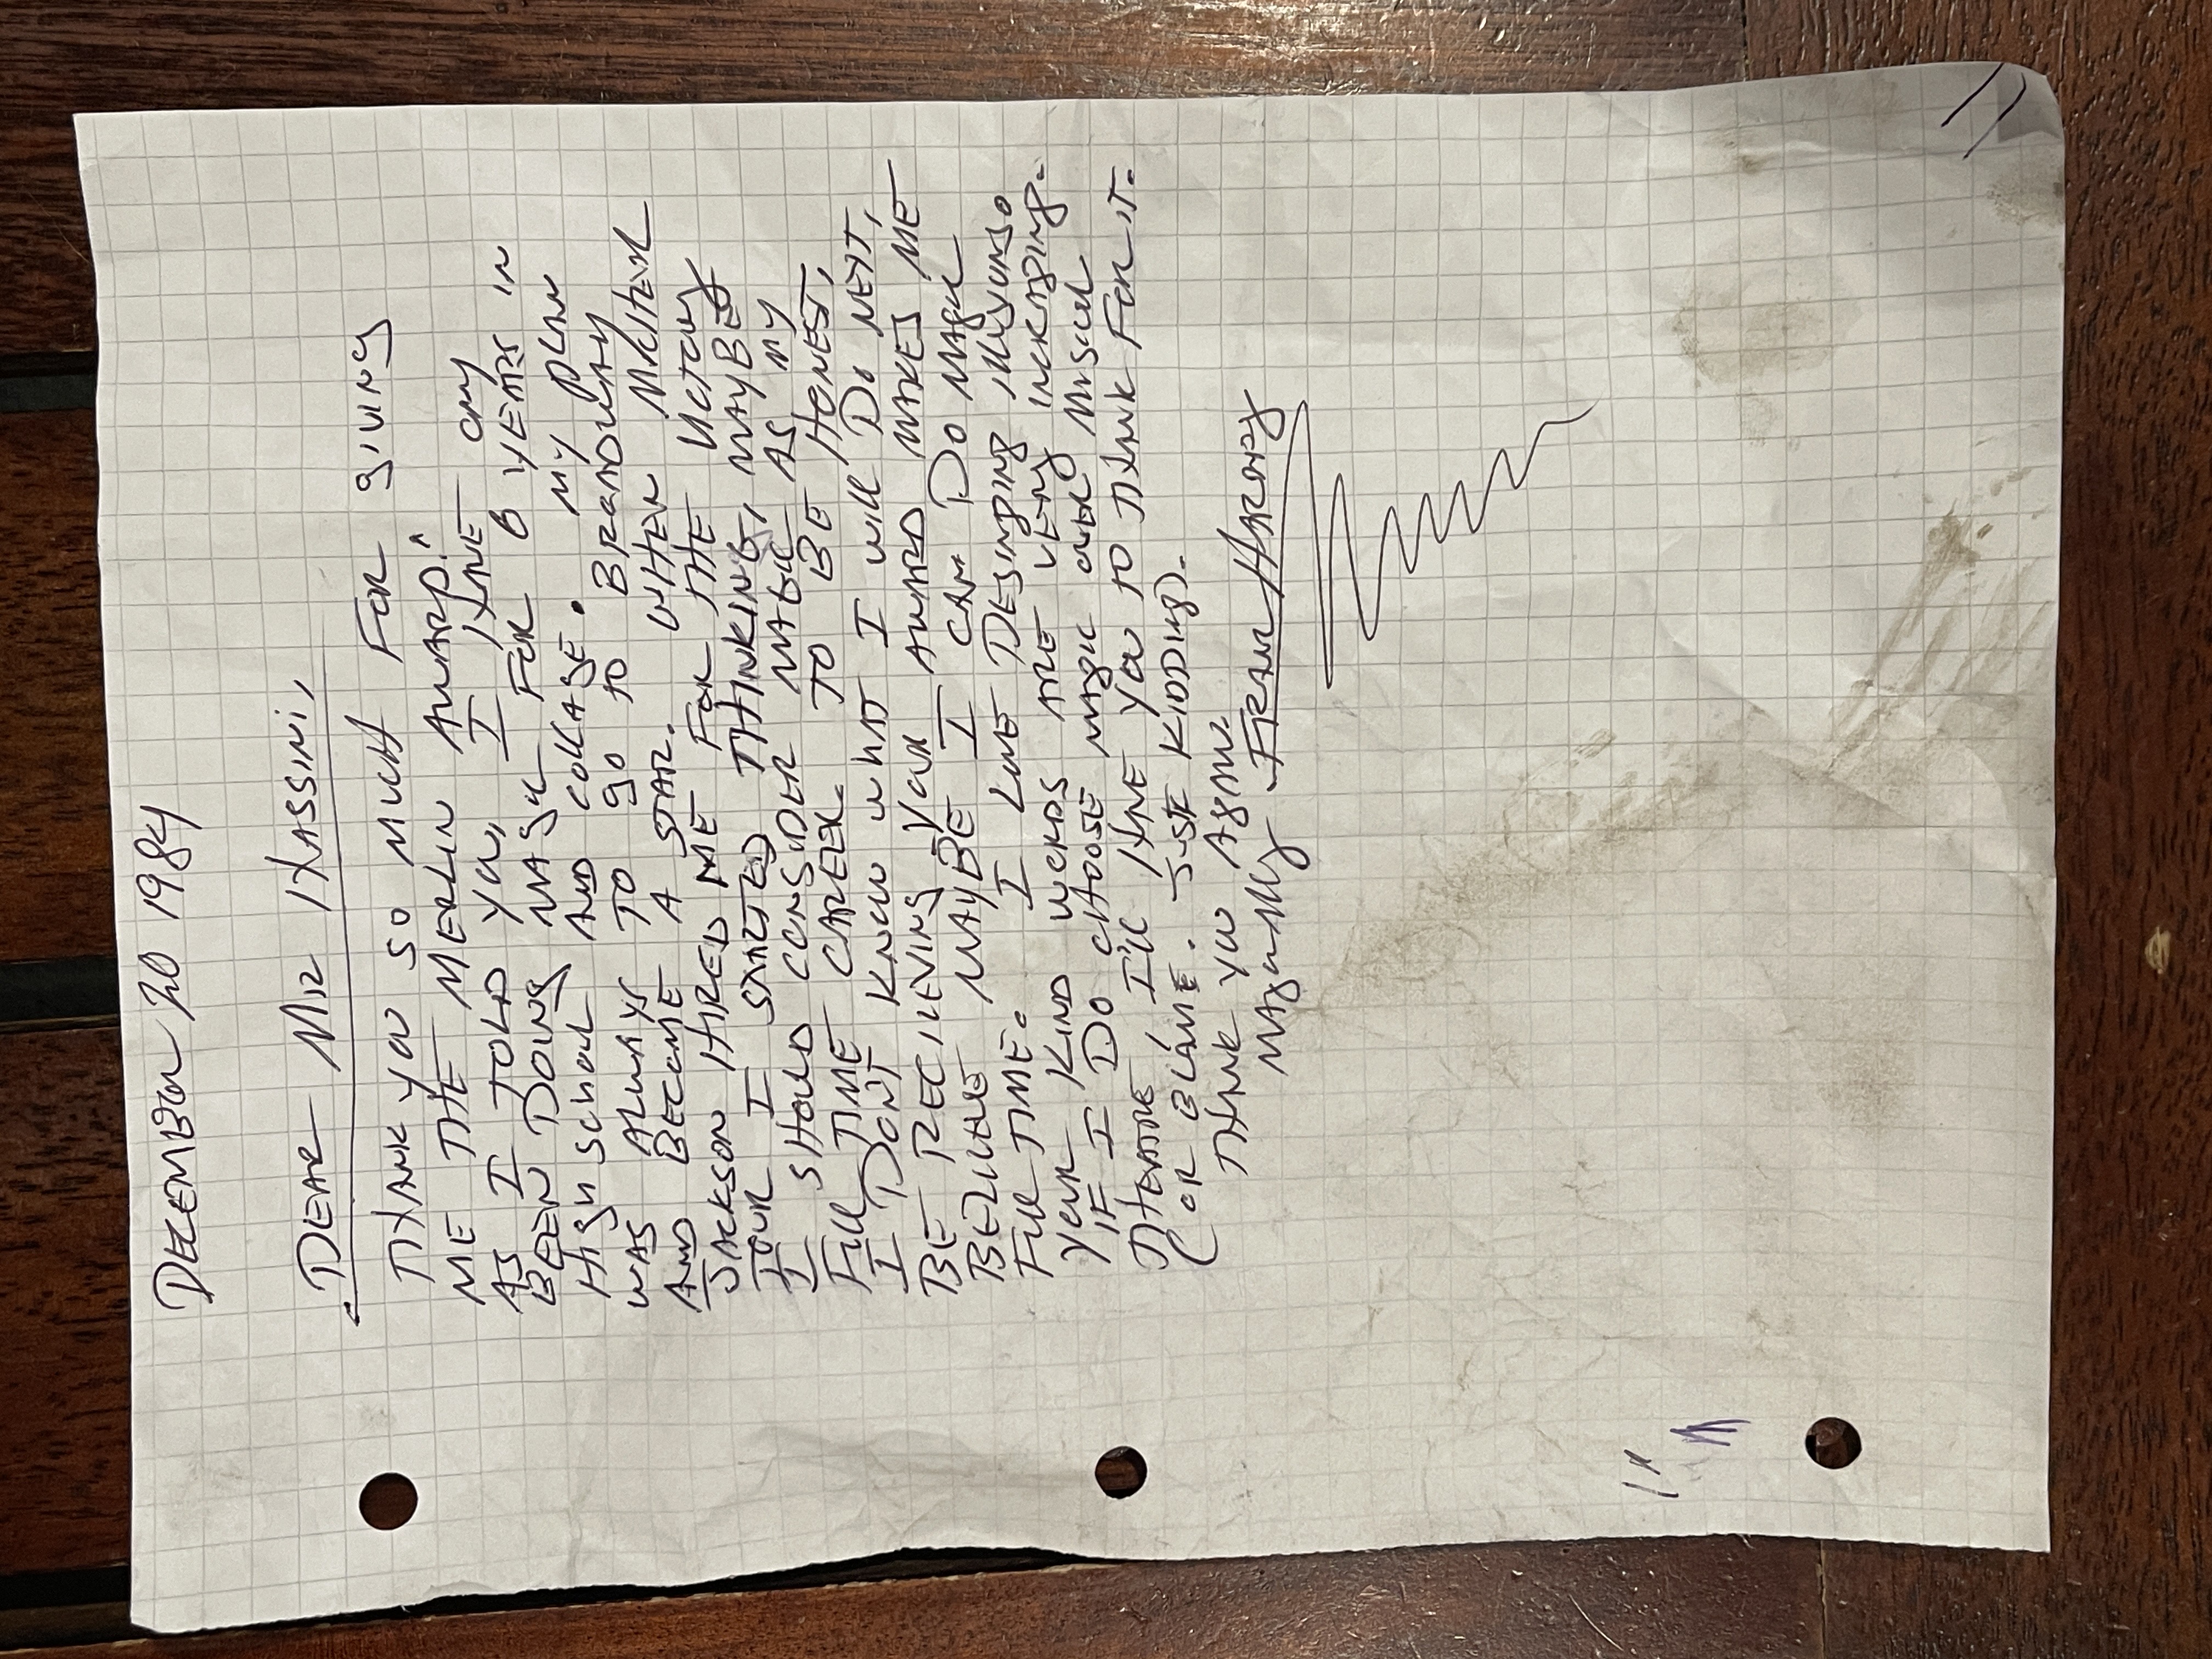 DECEMBER 20 1984
DEAR MR HASSINI,
THANK YOU SO MUCH FOR GIVING
ME THE MERLIN AWARD!
AS I TOLD YOU, I HAVE ONLY
BEEN DOING MAGIC FOR 8 YEARS IN
HIGH SCHOOL AND COLLAGE. MY PLAN
WAS ALWAYS TO GO TO BROADWAY
AND BECOME A STAR. WHEN
JACKSON HIRED ME FOR THE VICTORY
TOUR I STARTED THINKING, MAYBE
I SHOULD CONSIDER MAGIC AS MY
FULL TIME CAREER. TO BE HONEST,
I DONT KNOW WHAT I WILL DO NEXT,
BE RECIEVING YOUR AWARD MAKES ME
BELIEVE MAYBE I CAN DO MAGIC
FULL TIME. I LOVE DESINGING ILLUSIONS
YOUR KIND WORDS ARE VERY
IF I DO CHOOSE MAGIC OVER
THEATRE I'LL HAVE YOU TO THANK FOR IT.
(OR BLAME. JUST KIDDING).
THANK YOU AGAIN.
MAGICALLY FRANZ HARARY